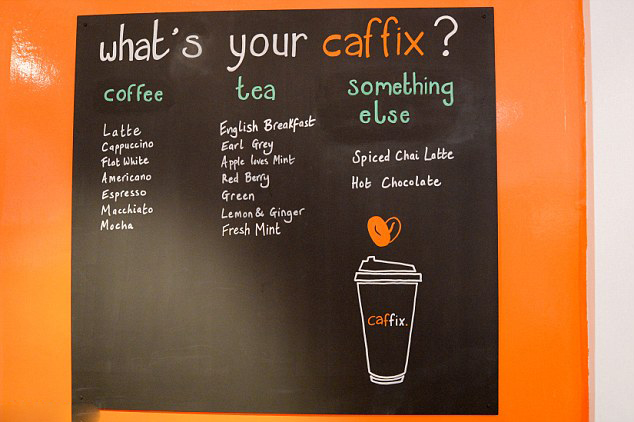 what's your caffix?
coffee
Latte
Cappuccino
Flat White
Americano
Espresso
Macchiato
Mocha
tea
English Breakfast
Earl Grey
Apple loves Mint
Red Berry
Green
Lemon & Ginger
Fresh Mint
something
else
Spiced Chai Latte
Hot Chocolate
caffix.